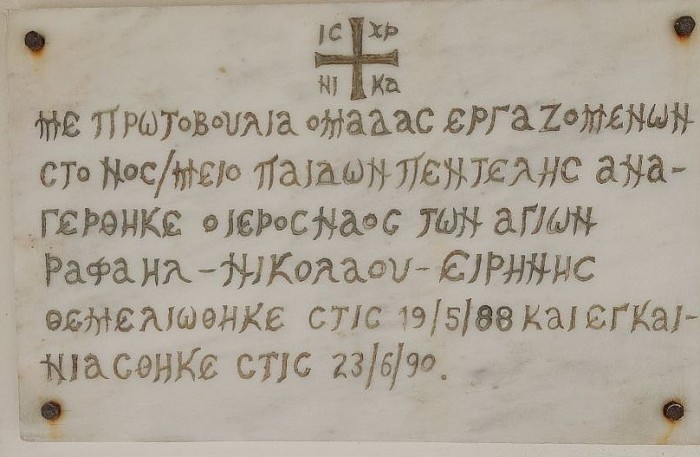 ΙC ΧΡ
ΝΙ ΚΑ
ΜΕ ΠΡΩΤΟΒΟΥΛΙΑ ΟΜΑΔΑC ΕΡΓΑΖΟΜΕΝΩΝ
CΤΟ ΝΟC/ΜΕΙΟ ΠΑΙΔΩΝ ΠΕΝΤΕΛΗC ΑΝΑ-
ΓΕΡΘΗΚΕ Ο ΙΕΡΟC ΝΑΟC ΤΩΝ ΑΓΙΩΝ
ΡΑΦΑΗΛ-ΝΙΚΟΛΑΟΥ-ΕΙΡΗΝΗC
ΘΕΜΕΛΙΩΘΗΚΕ CΤΙC 19/5/88 ΚΑΙ ΕΓΚΑΙ-
ΝΙΑCΘΗΚΕ CΤΙC 23/6/90.